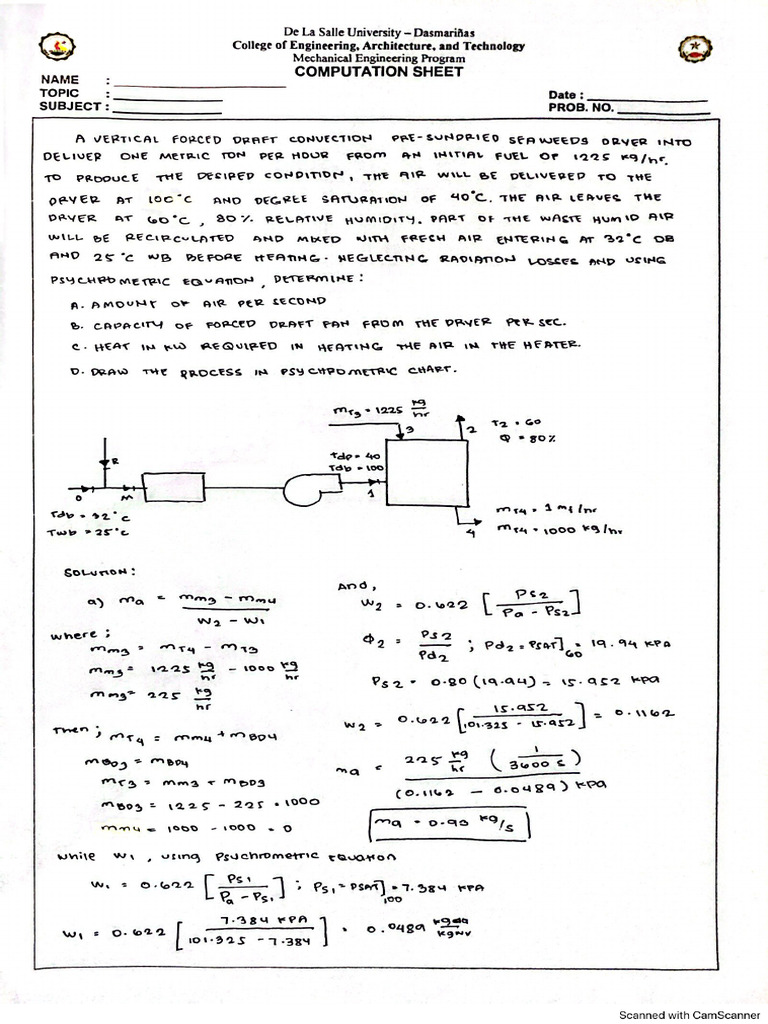 De La Salle University – Dasmariñas
College of Engineering, Architecture, and Technology
Mechanical Engineering Program
COMPUTATION SHEET
NAME :
TOPIC :
SUBJECT :
Date :
PROB. NO.
A VERTICAL FORCED DRAFT CONVECTION PRE-SUNDRIED SEAWEEDS DRYER INTO
DELIVER ONE METRIC TON PER HOUR FROM AN INITIAL FUEL OF 1225 kg/hr.
TO PRODUCE THE DESIRED CONDITION, THE AIR WILL BE DELIVERED TO THE
DRYER AT 100°C AND DEGREE SATURATION OF 40°C. THE AIR LEAVES THE
DRYER AT 60°C, 80% RELATIVE HUMIDITY. PART OF THE WASTE HUMID AIR
WILL BE RECIRCULATED AND MIXED WITH FRESH AIR ENTERING AT 32°C DB
AND 25°C WB BEFORE HEATING. NEGLECTING RADIATION LOSSES AND USING
PSYCHROMETRIC EQUATION, DETERMINE:
A. AMOUNT OF AIR PER SECOND
B. CAPACITY OF FORCED DRAFT FAN FROM THE DRYER PER SEC.
C. HEAT IN KW REQUIRED IN HEATING THE AIR IN THE HEATER.
D. DRAW THE PROCESS IN PSYCHROMETRIC CHART.
mT3 = 1225 kg/hr
3
2
T2 = 60
Φ = 80%
Tdp = 40
Tdb = 100
1
R
0
M
Tdb = 32°C
Twb = 25°C
4
mT4 = 1 mt/hr
mT4 = 1000 kg/hr
SOLUTION:
a) ma = (mm3 - mm4) / (W2 - W1)
where;
mm3 = mT4 - mT3
mm3 = 1225 kg/hr - 1000 kg/hr
mm3 = 225 kg/hr
Then; mT4 = mm4 + mBD4
mBD3 = mBD4
mT3 = mm3 + mBD3
mBD3 = 1225 - 225 = 1000
mm4 = 1000 - 1000 = 0
And,
W2 = 0.622 [Ps2 / (Pa - Ps2)]
Φ2 = Ps2 / Pd2 ; Pd2 = PSAT]60 = 19.94 KPA
Ps2 = 0.80 (19.94) = 15.952 KPA
W2 = 0.622 [15.952 / (101.325 - 15.952)] = 0.1162
ma = 225 kg/hr (1 / 3600 s) / (0.1162 - 0.0489) KPA
ma = 0.93 kg/s
while W1, using Psychrometric Equation
W1 = 0.622 [Ps1 / (Pa - Ps1)] ; Ps1 = PSAT]100 = 7.384 KPA
W1 = 0.622 [7.384 KPA / (101.325 - 7.384)] = 0.0489
Scanned with CamScanner